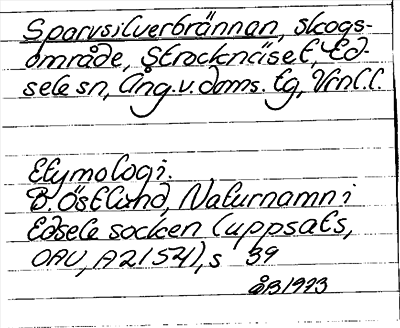 Sparvsilverbrännan, skogs-
område, Strocknäset, Ed-
sele sn, Ång.v.doms. tg, Vrnl.l.
Etymologi.
B Östlund, Naturnamn i
Edsele socken (uppsats,
OAU, A2154), s 39
ÅB 1973